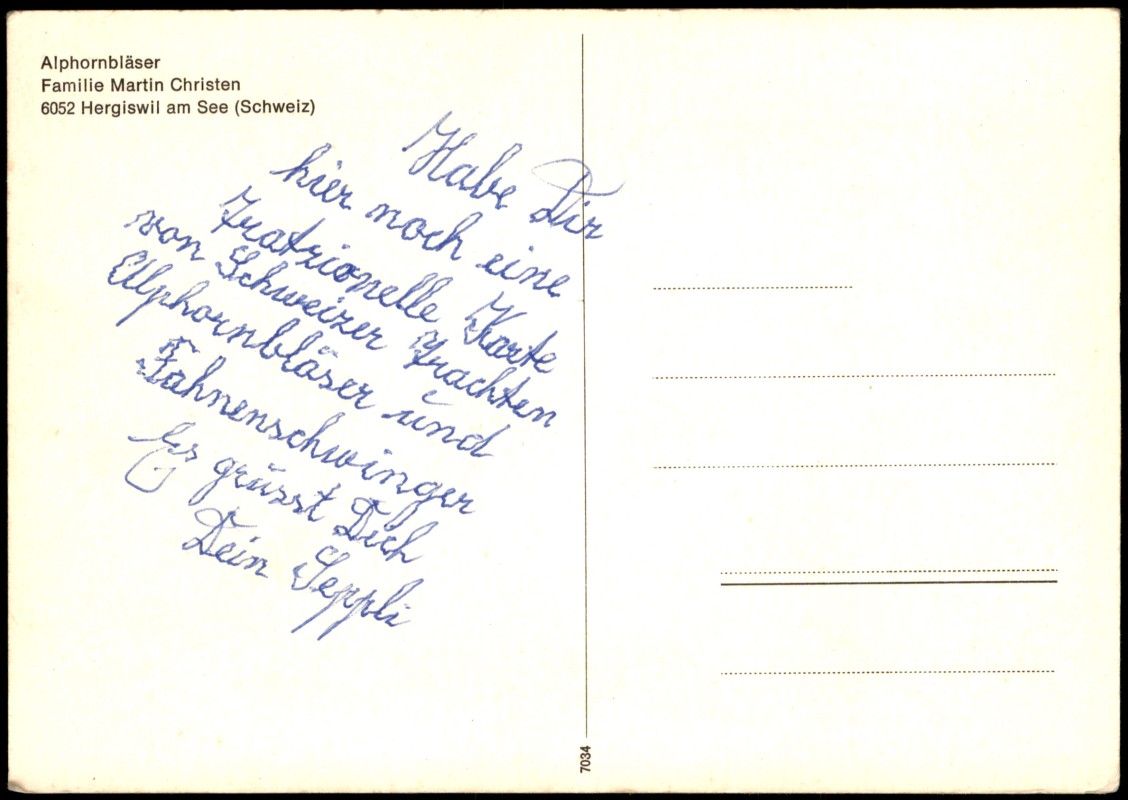 Alphornbläser
Familie Martin Christen
6052 Hergiswil am See (Schweiz)
Habe Dir
hier noch eine
tratzionelle Karte
von Schweizer Trachten
Alphornbläser und
Fahnenschwinger
Es grüsst Dich
Dein Seppli
7034